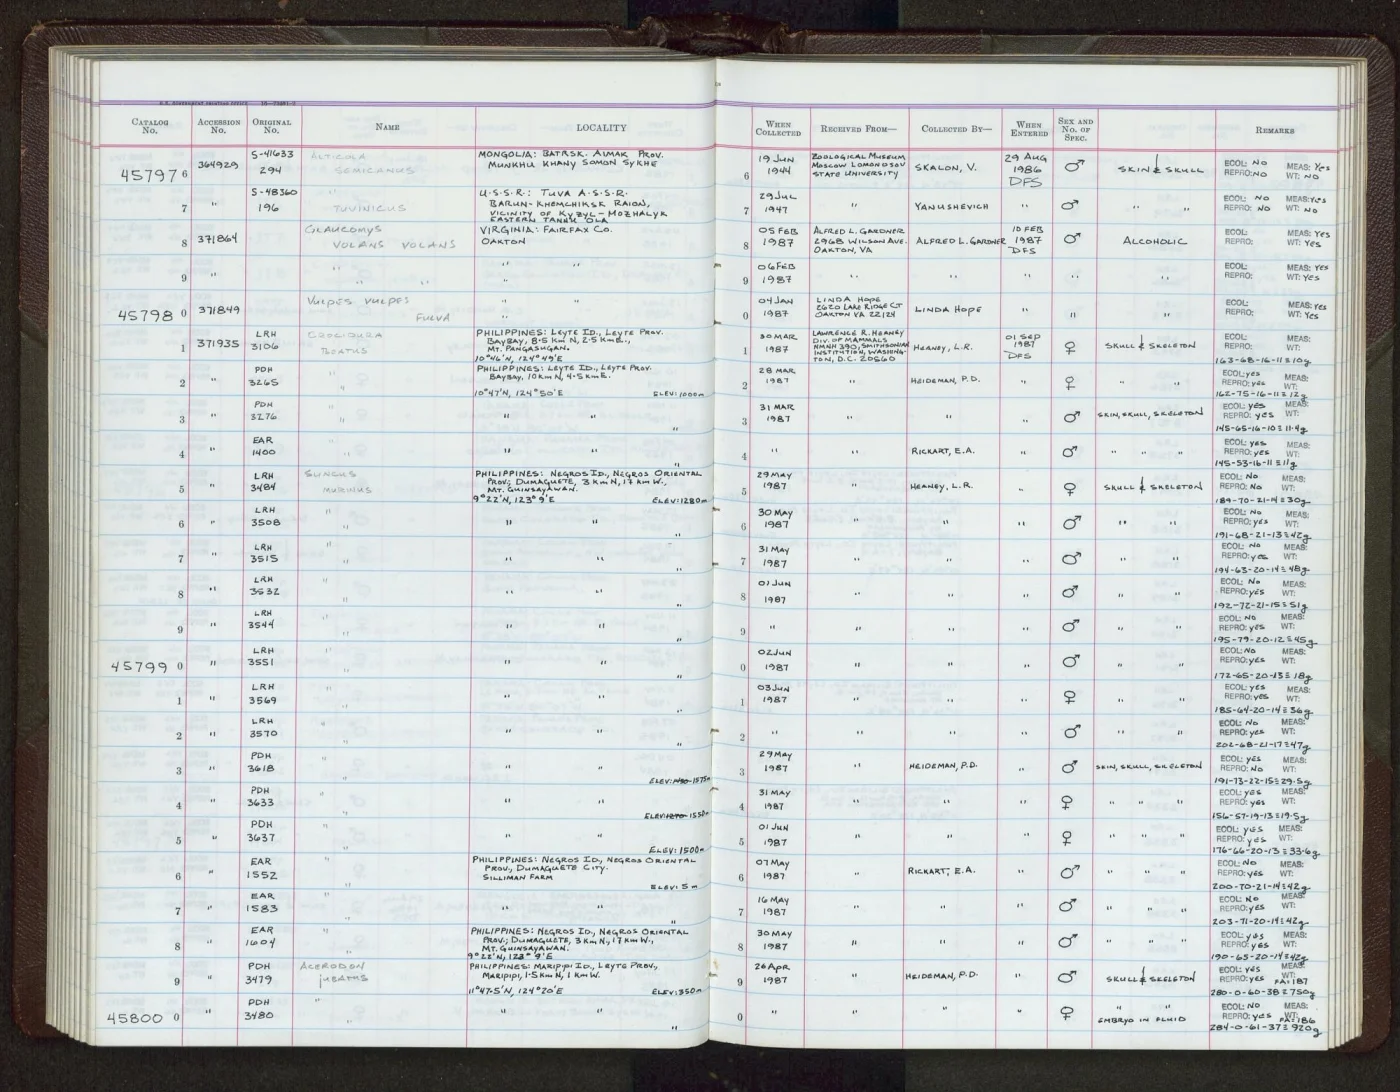 CATALOG No. ACCESSION No. ORIGINAL No. NAME LOCALITY WHEN COLLECTED RECEIVED FROM— COLLECTED BY— WHEN ENTERED SEX AND No. OF SPEC. REMARKS
457976 364929 S-41633 294 ALTICOLA SEMICANUS MONGOLIA: BATRSK. AIMAK PROV. MUNKHU KHANY SOMON SYKHE 6 19 JUN 1944 ZOOLOGICAL MUSEUM MOSCOW LOMONOSOV STATE UNIVERSITY SKALON, V. 29 AUG 1986 DFS ♂ SKIN & SKULL ECOL: NO MEAS: Yes REPRO: NO WT: NO
7 " S-48360 196 " TUVINICUS U.S.S.R.: TUVA A.S.S.R. BARUN-KHEMCHIKSK RAION, VICINITY OF KYZYL-MOZHALYK EASTERN TANNU OLA 7 29 JUL 1947 " YANUSHEVICH " ♂ " " ECOL: NO MEAS: Yes REPRO: NO WT: NO
8 371864 GLAUCOMYS VOLANS VOLANS VIRGINIA: FAIRFAX CO. OAKTON 8 05 FEB 1987 ALFRED L. GARDNER 2968 WILSON AVE. OAKTON, VA ALFRED L. GARDNER 10 FEB 1987 DFS ♂ ALCOHOLIC ECOL: MEAS: Yes REPRO: WT: Yes
9 " " " " " " " 9 06 FEB 1987 " " " " " ECOL: MEAS: Yes REPRO: WT: Yes
457980 371849 VULPES VULPES FULVA " " " 0 04 JAN 1987 LINDA HOPE 2620 LAKE RIDGE CT OAKTON VA 22124 LINDA HOPE " " " ECOL: MEAS: Yes REPRO: WT: Yes
1 371935 LRH 3106 CROCIDURA BEATUS PHILIPPINES: LEYTE ID., LEYTE PROV. BAYBAY, 8.5 Km N, 2.5 Km E., MT. PANGASUGAN. 10°46'N, 124°49'E 1 30 MAR 1987 LAWRENCE R. HEANEY DIV. OF MAMMALS NMNH 390, SMITHSONIAN INSTITUTION, WASHINGTON, D.C. 20560 HEANEY, L.R. 01 SEP 1987 DFS ♀ SKULL & SKELETON ECOL: MEAS: REPRO: WT: 163-68-16-11≡10g
2 " PDH 3265 " " PHILIPPINES: LEYTE ID., LEYTE PROV. BAYBAY, 10 Km N, 4.5 Km E. 10°47'N, 124°50'E ELEV: 1000m 2 28 MAR 1987 " HEIDEMAN, P.D. " ♀ " " ECOL: yes MEAS: REPRO: yes WT: 162-75-16-11≡12g
3 " PDH 3276 " " " " " 3 31 MAR 1987 " " " ♂ SKIN, SKULL, SKELETON ECOL: yes MEAS: REPRO: yes WT: 145-65-16-10≡11.4g
4 " EAR 1400 " " " " " 4 " " RICKART, E.A. " ♂ " " " ECOL: yes MEAS: REPRO: yes WT: 145-53-16-11≡11g
5 " LRH 3484 SUNCUS MURINUS PHILIPPINES: NEGROS ID., NEGROS ORIENTAL PROV; DUMAGUETE, 3 Km N, 17 Km W., MT. GUINSAYAWAN. 9°22'N, 123°9'E ELEV: 1280m 5 29 MAY 1987 " HEANEY, L.R. " ♀ SKULL & SKELETON ECOL: No MEAS: REPRO: No WT: 189-70-21-14≡30g
6 " LRH 3508 " " " " " 6 30 MAY 1987 " " " ♂ " " ECOL: No MEAS: REPRO: yes WT: 191-68-21-13≡42g
7 " LRH 3515 " " " " " 7 31 MAY 1987 " " " ♂ " " ECOL: No MEAS: REPRO: yes WT: 194-63-20-14≡48g
8 " LRH 3532 " " " " " 8 01 JUN 1987 " " " ♂ " " ECOL: No MEAS: REPRO: yes WT: 192-72-21-15≡51g
9 " LRH 3544 " " " " " 9 " " " " ♂ " " ECOL: No MEAS: REPRO: yes WT: 195-79-20-12≡45g
457990 " LRH 3551 " " " " " 0 02 JUN 1987 " " " ♂ " " ECOL: No MEAS: REPRO: yes WT: 172-65-20-13≡18g
1 " LRH 3569 " " " " " 1 03 JUN 1987 " " " ♀ " " ECOL: yes MEAS: REPRO: yes WT: 185-64-20-14≡36g
2 " LRH 3570 " " " " " 2 " " " " ♂ " " ECOL: No MEAS: REPRO: yes WT: 202-68-21-17≡47g
3 " PDH 3618 " " " " ELEV: 1575m 3 29 MAY 1987 " HEIDEMAN, P.D. " ♂ SKIN, SKULL, SKELETON ECOL: yes MEAS: REPRO: No WT: 191-73-22-15≡29.5g
4 " PDH 3633 " " " " ELEV: 1550m 4 31 MAY 1987 " " " ♀ " " " ECOL: yes MEAS: REPRO: yes WT: 156-57-19-13≡19.5g
5 " PDH 3637 " " " " ELEV: 1500m 5 01 JUN 1987 " " " ♀ " " " ECOL: yes MEAS: REPRO: yes WT: 176-66-20-13≡33.6g
6 " EAR 1552 " " PHILIPPINES: NEGROS ID., NEGROS ORIENTAL PROV., DUMAGUETE CITY. SILLIMAN FARM ELEV: 5m 6 07 MAY 1987 " RICKART, E.A. " ♂ " " " ECOL: No MEAS: REPRO: yes WT: 200-70-21-14≡42g
7 " EAR 1583 " " " " " 7 16 MAY 1987 " " " ♂ " " " ECOL: No MEAS: REPRO: yes WT: 203-71-20-14≡42g
8 " EAR 1604 " " PHILIPPINES: NEGROS ID., NEGROS ORIENTAL PROV.; DUMAGUETE, 3 Km N, 17 Km W., MT. GUINSAYAWAN. 9°22'N, 123°9'E 8 30 MAY 1987 " " " ♂ " " " ECOL: yes MEAS: REPRO: yes WT: 190-65-20-14≡42g
9 " PDH 3479 ACERODON JUBATUS PHILIPPINES: MARIPIPI ID., LEYTE PROV., MARIPIPI, 1.5 Km N, 1 Km W. 11°47.5'N, 124°20'E ELEV: 350m 9 26 Apr 1987 " HEIDEMAN, P.D. " ♂ SKULL & SKELETON ECOL: yes MEAS: REPRO: yes FA=187 280-0-60-38≡750g
458000 " PDH 3480 " " " " " 0 " " " " ♀ " " EMBRYO IN FLUID ECOL: No MEAS: REPRO: yes WT: FA=186 284-0-61-37≡920g